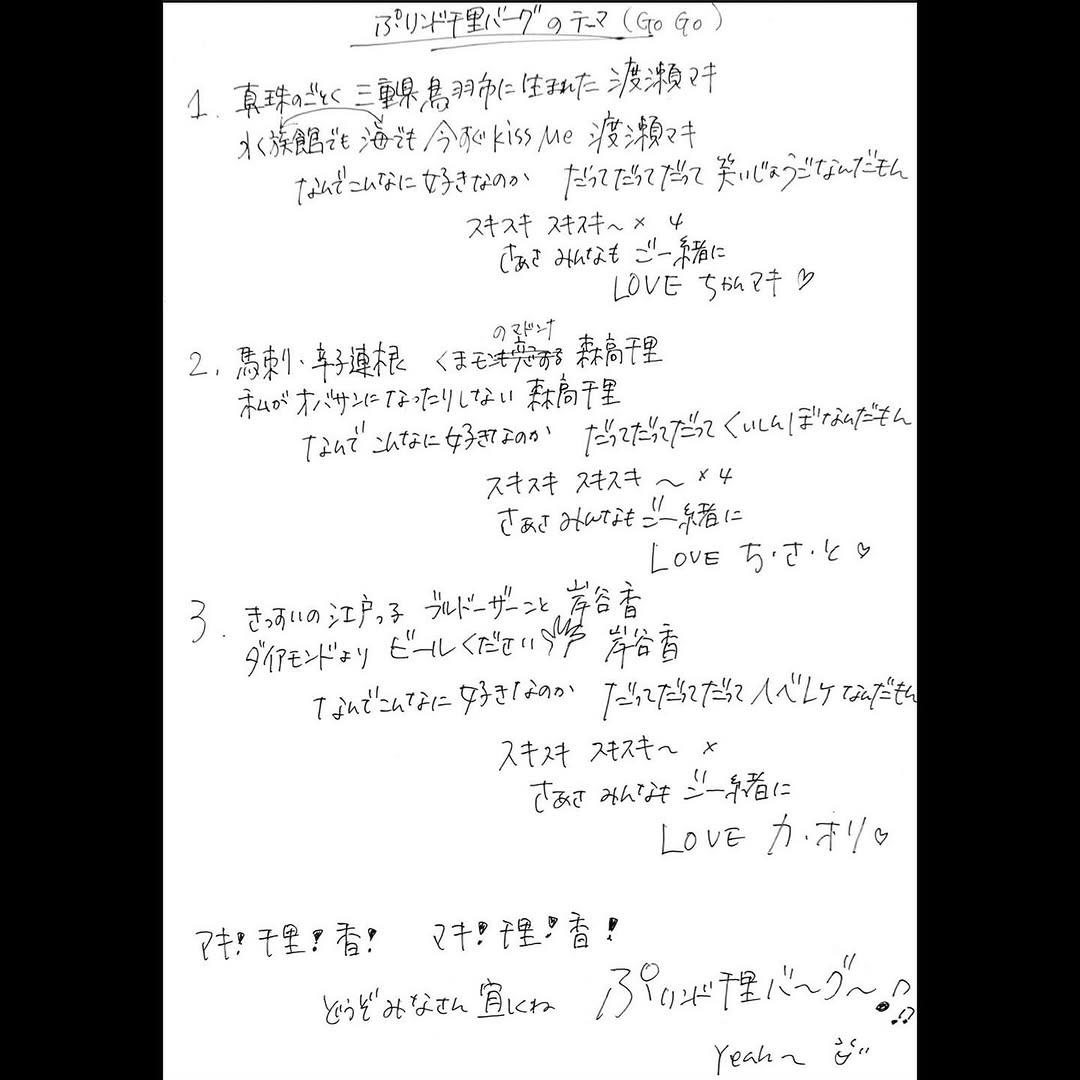 ぷリンド千里バーグのテーマ(GO GO)
1. 真珠のごとく 三重県鳥羽市に生まれた 渡瀬マキ
水く族館でも 海でも 今すぐKiss Me 渡瀬マキ
なんでこんなに好きなのか だってだってだって 笑いじょうごなんだもん
スキスキ スキスキ〜 × 4
さあさ みんなも ご一緒に
LOVE ちゃんマキ♡
のマドンナ
2. 馬刺・辛子連根 くまモン 森高千里
私がオバサンになったりしない 森高千里
なんでこんなに好きなのか だってだってだって くいしんぼなんだもん
スキスキ スキスキ 〜 ×4
さあさ みんなも ご一緒に
LOVE ち・さ・と♡
3. きっすいの江戸っ子 ブルドーザーこと 岸谷香
ダイアモンドより ビールください 岸谷香
なんでこんなに好きなのか だってだってだって ノンベレケなんだもん
スキスキ スキスキ〜 ×
さあさ みんなも ご一緒に
LOVE カ・オリ♡
マキ!千里!香! マキ!千里!香!
どうぞみなさん 宜しくね ぷリンド千里バ〜グ〜♪
Yeah〜